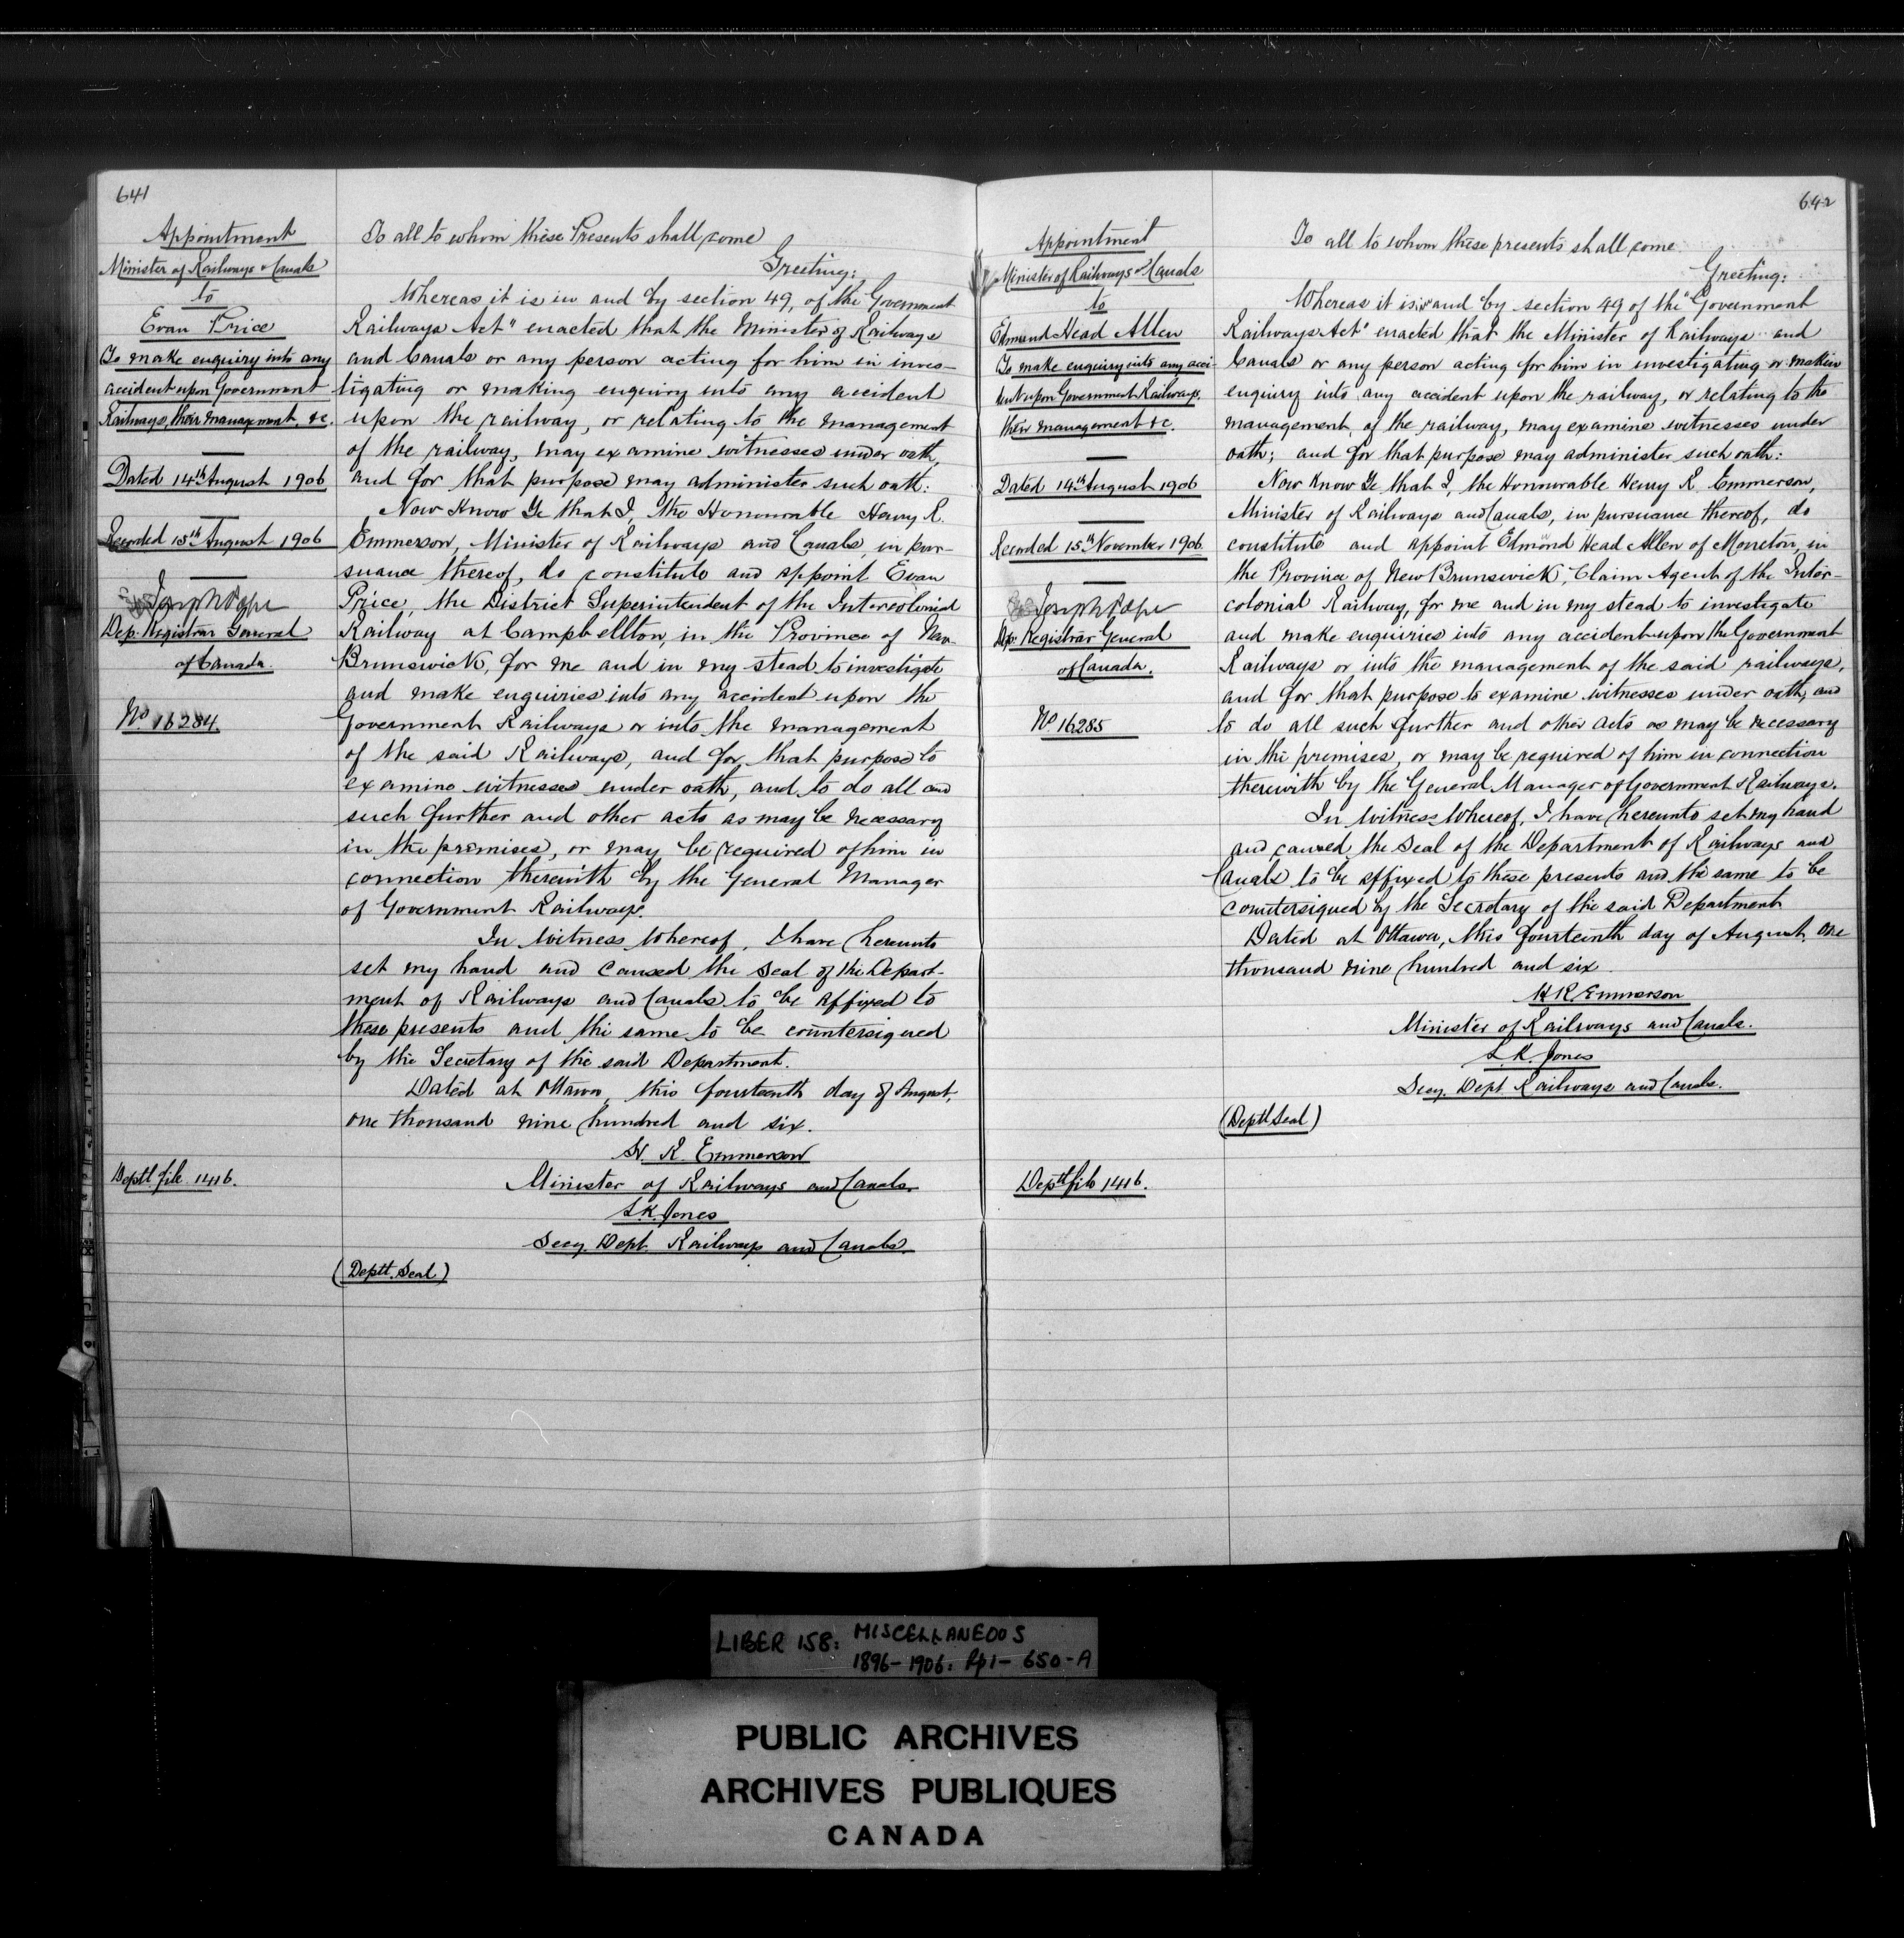 641
Appointment
Minister of Railways & Canals
to
Evan Price
To make enquiry into any
accident upon Government
Railways, their management, &c.
Dated 14th August 1906
Recorded 15th August 1906
Joseph Pope
Dep. Registrar General
of Canada.
No 16284.
Deptl. file 1416.
To all to whom these Presents shall come
Greeting:
Whereas it is in and by section 49, of the Government
Railways Act" enacted that the Minister of Railways
and Canals or any person acting for him in inves-
tigating or making enquiry into any accident
upon the railway, or relating to the management
of the railway, may examine witnesses under oath,
and for that purpose may administer such oath:
Now Know Ye that I, the Honourable Henry R.
Emmerson, Minister of Railways and Canals, in pur-
suance thereof, do constitute and appoint Evan
Price, the District Superintendent of the Intercolonial
Railway at Campbellton, in the Province of New
Brunswick, for me and in my stead to investigate
and make enquiries into any accident upon the
Government Railways or into the management
of the said Railways, and for that purpose to
examine witnesses under oath, and to do all and
such further and other acts as may be necessary
in the premises, or may be required of him in
connection therewith by the General Manager
of Government Railways.
In Witness Whereof, I have hereunto
set my hand and caused the Seal of the Depart-
ment of Railways and Canals to be affixed to
these presents and the same to be countersigned
by the Secretary of the said Department.
Dated at Ottawa, this fourteenth day of August,
one thousand nine hundred and six.
H. R. Emmerson
Minister of Railways and Canals.
L. K. Jones
Secy. Dept. Railways and Canals.
(Deptl. Seal)
642
Appointment
Minister of Railways & Canals
to
Edmund Head Allen
To make enquiry into any acci-
dent upon Government Railways,
their management &c.
Dated 14th August 1906
Recorded 15th November 1906
Joseph Pope
Dep. Registrar General
of Canada.
No 16285
Deptl file 1416.
To all to whom these presents shall come
Greeting:
Whereas it is in and by section 49 of the "Government
Railways Act" enacted that the Minister of Railways and
Canals or any person acting for him in investigating or making
enquiry into any accident upon the railway, or relating to the
management, of the railway, may examine witnesses under
oath; and for that purpose may administer such oath:
Now Know Ye that I, the Honourable Henry R. Emmerson,
Minister of Railways and Canals, in pursuance thereof, do
constitute and appoint Edmond Head Allen of Moncton, in
the Province of New Brunswick, Claim Agent of the Inter-
colonial Railway, for me and in my stead to investigate
and make enquiries into any accident upon the Government
Railways or into the management of the said railways,
and for that purpose to examine witnesses under oath, and
to do all such further and other acts as may be necessary
in the premises, or may be required of him in connection
therewith by the General Manager of Government Railways.
In Witness Whereof, I have hereunto set my hand
and caused the Seal of the Department of Railways and
Canals to be affixed to these presents and the same to be
countersigned by the Secretary of the said Department
Dated at Ottawa, this fourteenth day of August, one
thousand nine hundred and six.
H R Emmerson
Minister of Railways and Canals.
L. K. Jones
Secy. Dept. Railways and Canals.
(Deptl Seal)
LIBER 158: MISCELLANEOUS
1896-1906: Pp 1- 650-A
PUBLIC ARCHIVES
ARCHIVES PUBLIQUES
CANADA